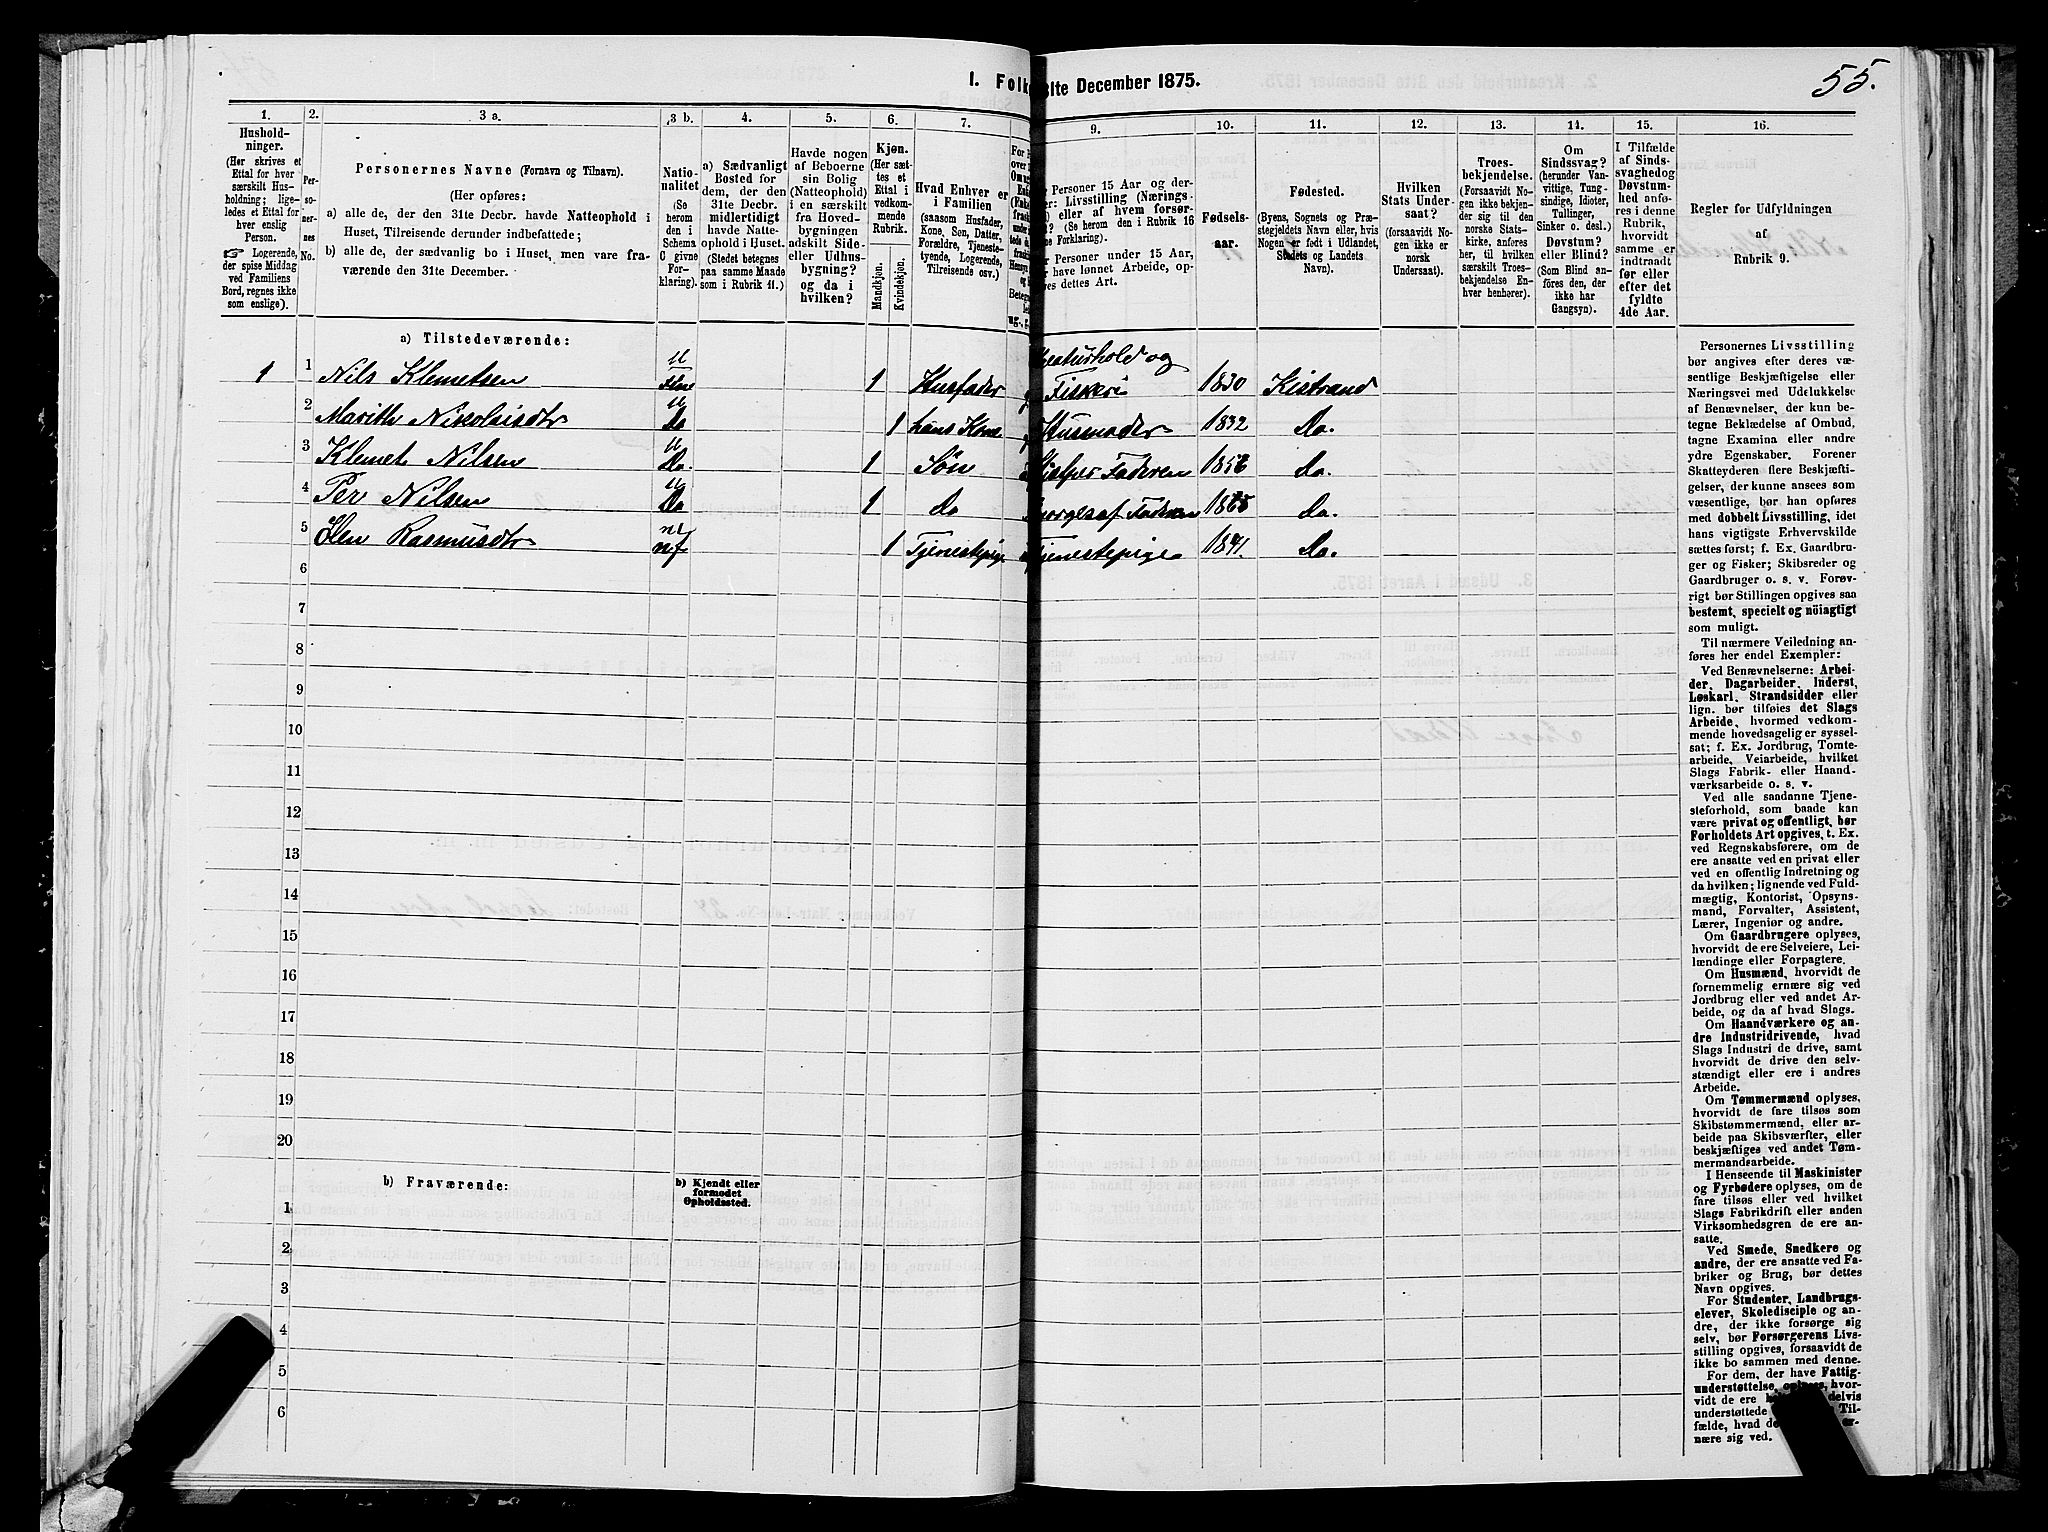 I. Folk
31te December 1875.
55.
1.
Hushold-
ninger.
(Her skrives et
Ettal for hver
særskilt Hus-
holdning; lige-
ledes et Ettal for
hver enslig
Person.
Logerende,
der spise Middag
ved Familiens
Bord, regnes ikke
som enslige).
2.
Per-
so-
ner-
nes
No.
3 a.
Personernes Navne (Fornavn og Tilnavn).
(Her opføres:
a) alle de, der den 31te Decbr. havde Natteophold i
Huset, Tilreisende derunder indbefattede;
b) alle de, der sædvanlig bo i Huset, men vare fra-
værende den 31te December.
3 b.
Natio-
nalitet
(Se
herom
den i
Schema
C givne
For-
klaring).
4.
a) Sædvanligt
Bosted for
dem, der den
31te Decbr.
midlertidigt
havde Natte-
ophold i Huset.
(Stedet betegnes
paa samme Maade
som i Rubrik 11.)
5.
Havde nogen
af Beboerne
sin Bolig
(Natteophold)
i en særskilt
fra Hoved-
bygningen
adskilt Side-
eller Udhus-
bygning?
og da i
hvilken?
6.
Kjøn.
(Her sæt-
tes et
Ettal i
vedkom-
mende
Rubrik.
Mandkjøn.
Kvindekjøn.
7.
Hvad Enhver er
i Familien
(saasom Husfader,
Kone, Søn, Datter,
Forældre, Tjeneste-
tyende, Logerende,
Tilreisende osv.)
9.
Personer 15 Aar og der-
er: Livsstilling (Nærings-
eller af hvem forsør-
(Se herom i Rubrik 16
ne Forklaring).
Personer under 15 Aar,
have lønnet Arbeide, op-
res dettes Art.
10.
Fødsels-
aar.
11.
Fødested.
(Byens, Sognets og Præ-
stegjeldets Navn eller, hvis
Nogen er født i Udlandet,
Stedets og Landets
Navn).
12.
Hvilken
Stats Under-
saat?
(forsaavidt No-
gen ikke er
norsk
Undersaat).
13.
Troes-
bekjendelse.
(Forsaavidt No-
gen ikke bekjen-
der sig til den
norske Stats-
kirke, anføres
her, til hvilken
særskilt Troes-
bekjendelse En-
hver henhører).
14.
Om
Sindssvag?
(herunder Van-
vittige, Tung-
sindige, Idioter,
Tullinger,
Sinker o. desl.)
Døvstum?
eller Blind?
(Som Blind an-
føres den, der
ikke har
Gangsyn).
15.
I Tilfælde
af Sinds-
svaghedog
Døvstum-
hed anfø-
res i denne
Rubrik,
hvorvidt
samme er
indtraadt
før eller
efter det
fyldte
4de Aar.
16.
Regler for Udfyldningen
af
Rubrik 9.
a) Tilstedeværende:
1 1 Nils Klemetsen 1 Husfader Kreaturhold og Fiskeri 1830 Kistrand
2 Marith Nikolaisdtr Do 1 hans Kone Husmoder 1832 Do.
3 Klemet Nilsen Do. 1 Søn Hjælper Faderen 1856 Do.
4 Per Nilsen Do 1 Do Sørges af Faderen Do.
5 Elen Rasmusdtr nf 1 Tjenestepige Tjenestepige 1841. Do.
6
7
8
9
10
11
12
13
14
15
16
17
18
19
20
b) Fraværende:
b) Kjendt eller
formodet
Opholdssted.
1
2
3
4
5
6
Personernes Livsstilling
bør angives efter deres væ-
sentlige Beskjæftigelse eller
Næringsvei med Udelukkelse
af Benævnelser, der kun be-
tegne Beklædelse af Ombud,
tagne Examina eller andre
ydre Egenskaber. Forener
Skatteyderen flere Beskjæfti-
gelser, der kunne ansees som
væsentlige, bør han opføres
med dobbelt Livsstilling, idet
hans vigtigste Erhvervskilde
sættes først; f. Ex. Gaardbru-
ger og Fisker; Skibsreder og
Gaardbruger o. s. v. Forøv-
rigt bør Stillingen opgives saa
bestemt, specielt og nöiagtigt
som muligt.
Til nærmere Veiledning an-
føres her endel Exempler:
Ved Benævnelserne: Arbei-
der, Dagarbeider, Inderst,
Løskarl, Strandsidder eller
lign. bør tilføies det Slags
Arbeide, hvormed vedkom-
mende hovedsagelig er syssel-
sat; f. Ex. Jordbrug, Tomte-
arbeide, Veiarbeide, hvilket
Slags Fabrik- eller Haand-
værksarbeide o. s. v.
Ved alle saadanne Tjene-
steforhold, som baade kan
være privat og offentligt, bør
Forholdets Art opgives, t. Ex.
ved Regnskabsførere, om de
ere ansatte ved en privat eller
ved en offentlig Indretning og
da hvilken; lignende ved Fuld-
mægtig, Kontorist, Opsyns-
mand, Forvalter, Assistent,
Lærer, Ingeniør og andre.
Om Gaardbrugere oplyses,
hvorvidt de ere Selveiere, Lei-
lændinge eller Forpagtere.
Om Husmænd, hvorvidt de
fornemmelig ernære sig ved
Jordbrug eller ved andet Ar-
beide, og da af hvad Slags.
Om Haandværkere og an-
dre Industridrivende, hvad
Slags Industri de drive, samt
hvorvidt de drive den selv-
stændigt eller ere i andres
Arbeide.
Om Tømmermænd oplyses,
hvorvidt de fare tilsøs som
Skibstømmermænd, eller ar-
beide paa Skibsværfter, eller
beskjæftiges ved andet Tøm-
mermandsarbeide.
I Henseende til Maskinister
og Fyrbødere oplyses, om de
fare tilsøs eller ved hvilket
Slags Fabrikdrift eller anden
Virksomhedsgren de ere an-
satte.
Ved Smede, Snedkere og
andre, der ere ansatte ved Fa-
briker og Brug, bør dettes
Navn opgives.
For Studenter, Landbrugs-
elever, Skoledisciple og an-
dre, der ikke forsørge sig
selv, bør Forsørgerens Livs-
stilling opgives, forsaavidt de
ikke bo sammen med denne.
For dem, der have Fattig-
understøttelse, oplyses, hvor-
vidt de ere delvis
understøttede Til-
fælde, hvad de er-
nære sig ved.